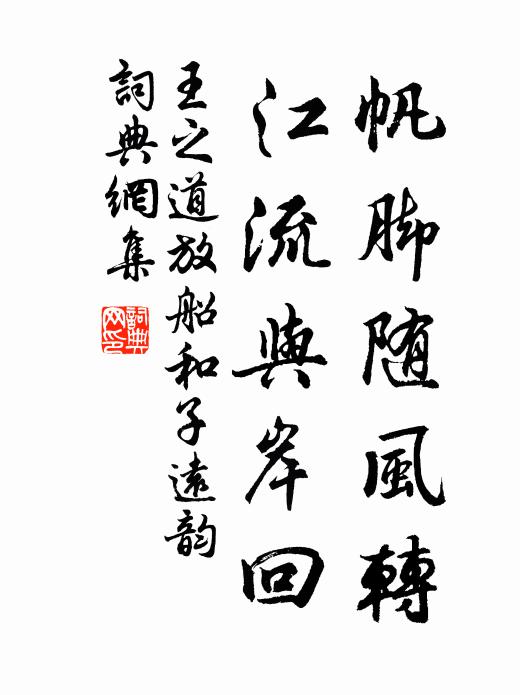 帆脚随風轉
江流與岸回
王之道放船和子遠韵
詞典網集
詞典网印